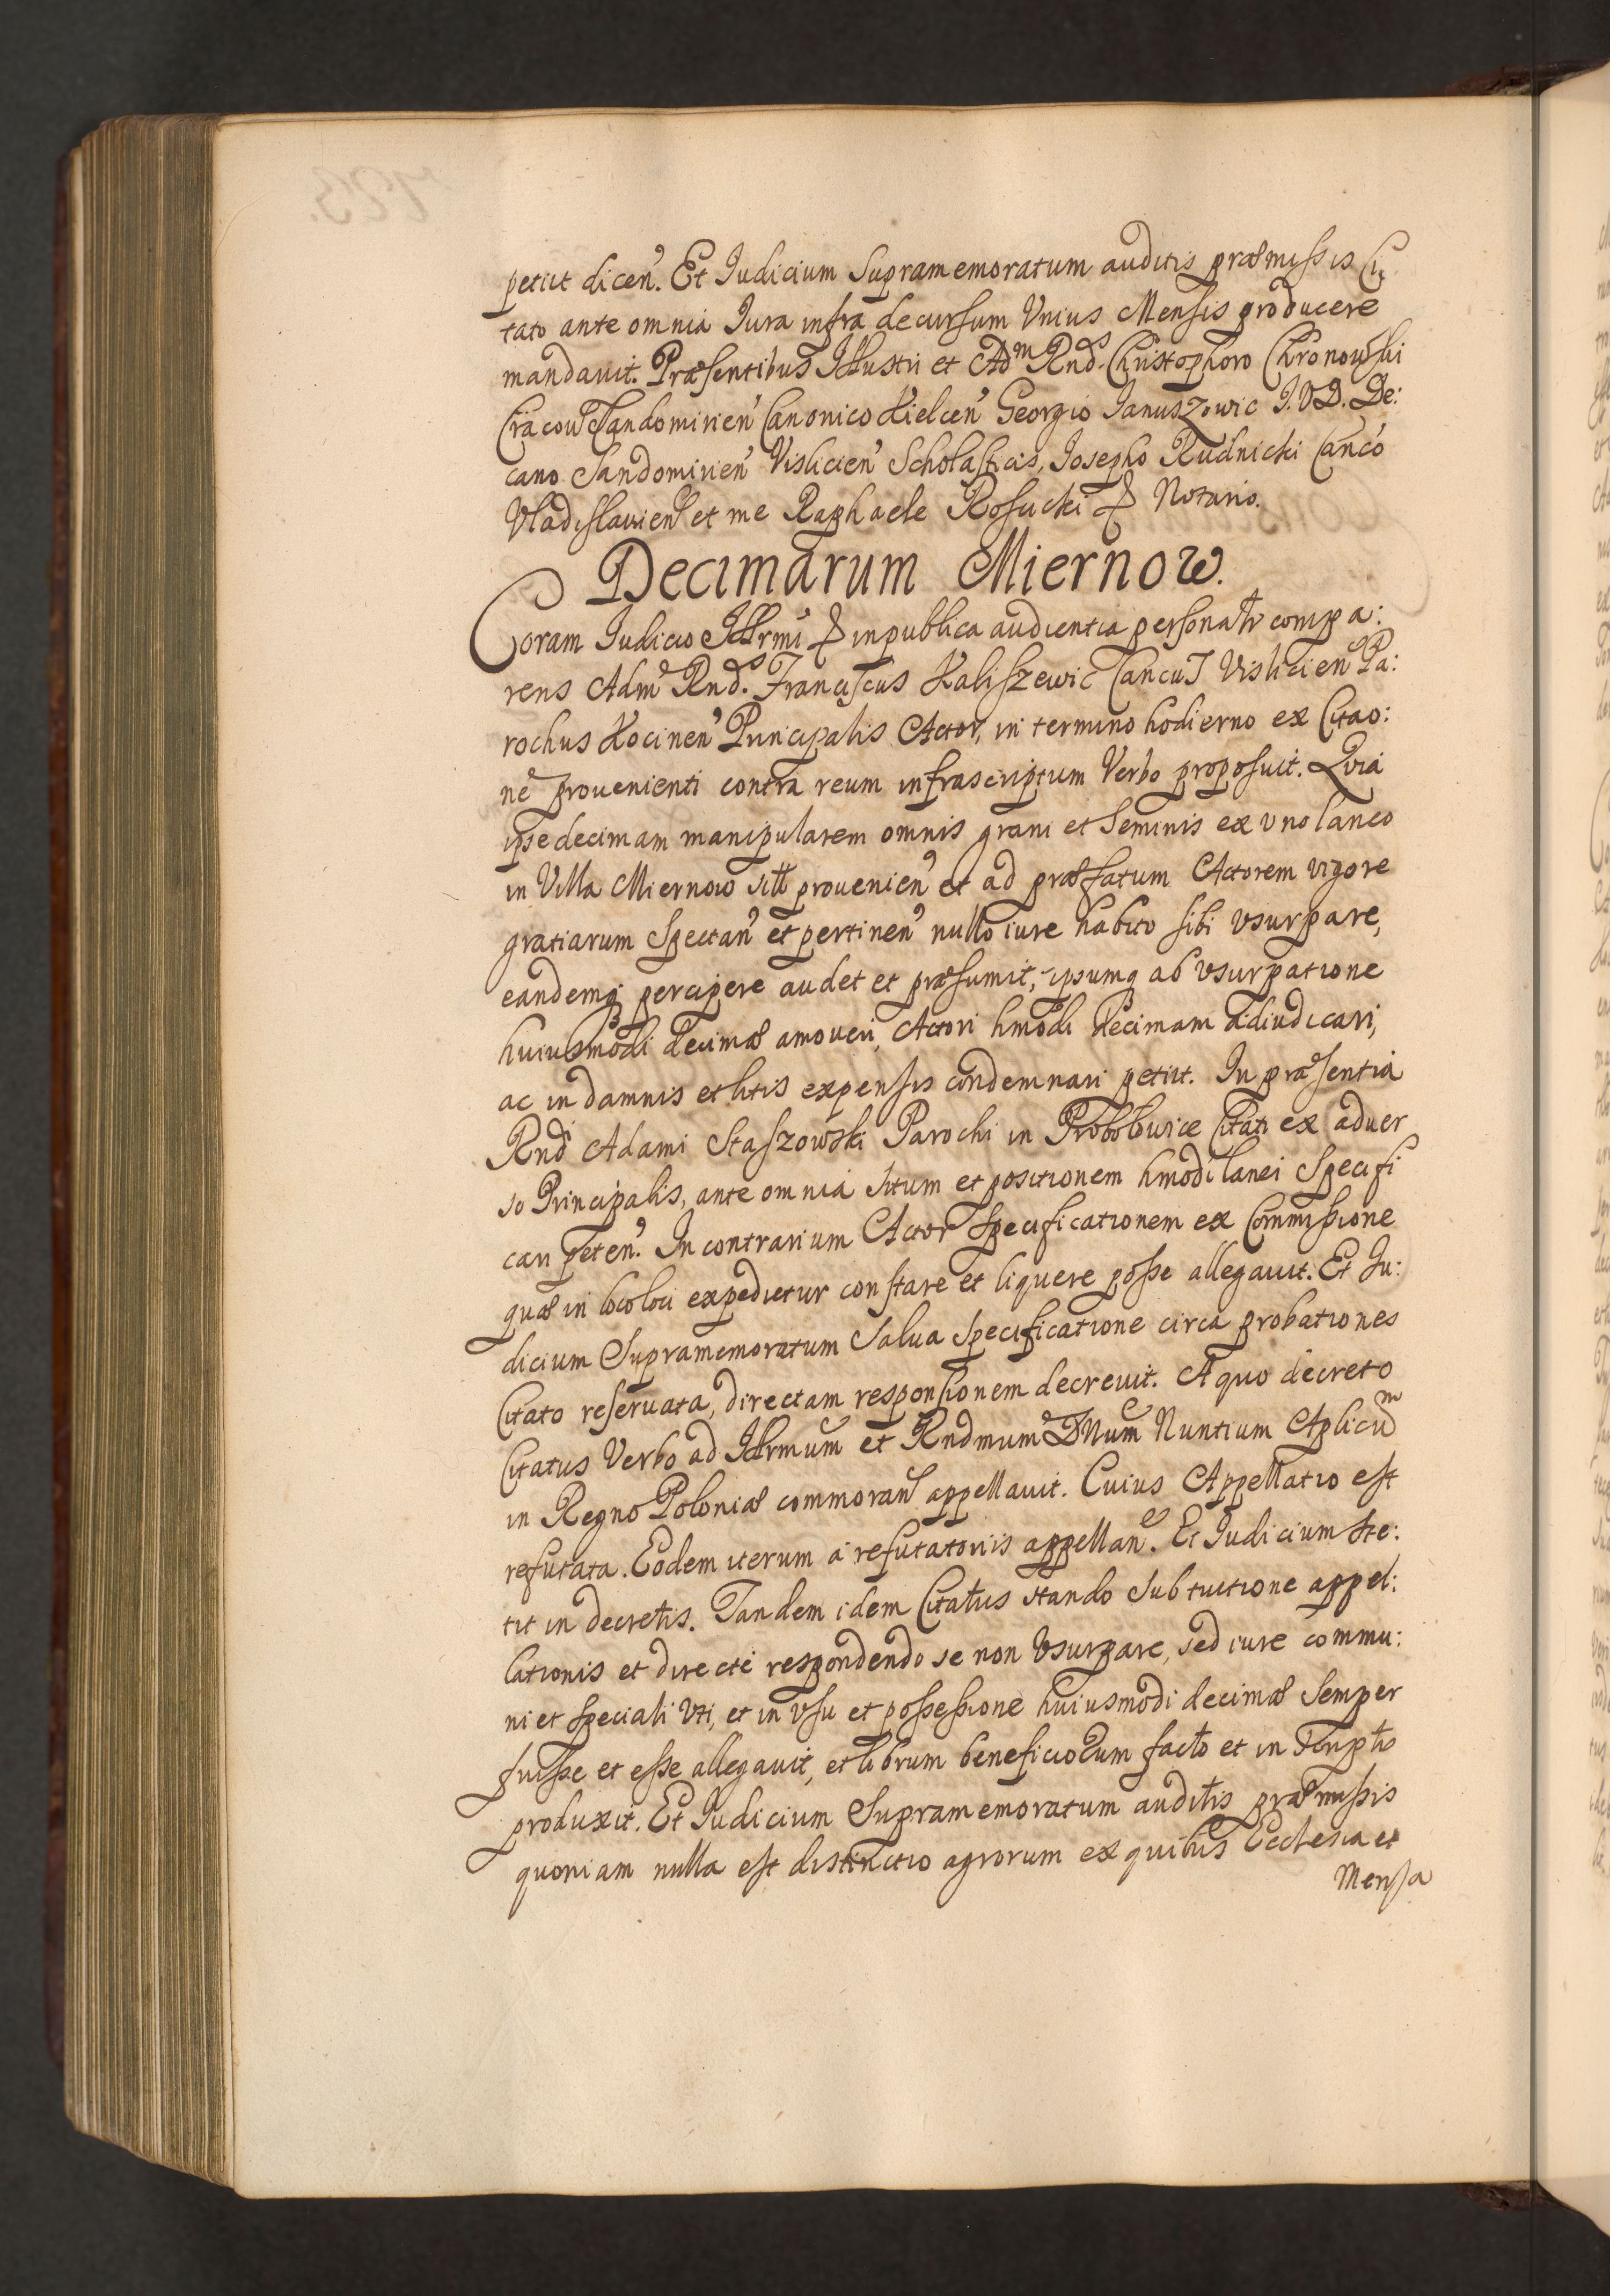 petiit dicen̄. Et Iudicium Supramemoratum auditis præmissis Ci
tato ante omnia Iura infra decursum Vnius Mensis producere
mandauit. Præsentibus Illustri et Adm Rnd. Christophoro Chronowski
Cracou Sandomirien̄ Canonico Kielcen̄ Georgio Ianuszowic I.VD. De:
cano Sandomirien̄ Vislicien̄ Scholasticis, Iosepho Rudnicki Canco
Vladislauien̄ et me Raphaele Rosucki & Notario.
Decimarum Miernow.
Coram Iudicio Illrmi & in publica audientia personalr compa:
rens Adm Rnds. Franciscus Kaliszewic Cancus Vislicien̄ Pa:
rochus Kocinen̄ Principalis Actor, in termino hodierno ex Citao:
nē prouenienti contra reum infrascriptum Verbo proposuit. Quia
ipse decimam manipularem omnis grani et Seminis ex vno laneo
in Villa Miernow sitt prouenien̄ et ad præfatum Actorem vigore
gratiarum Spectan̄ et pertinen̄ nullo iure habito sibi vsurpare,
eandemq percipere audet et præsumit, ipsumq ab vsurpatione
huiusmodi decimæ amoueri, Actori hmodi decimam adiudicari,
ac in damnis et litis expensis condemnari petiit. In præsentia
Rndi Adami Staszowski Parochi in Probolowice Citati ex aduer
so Principalis, ante omnia situm et positionem hmodi lanei Specifi
cari peten̄. In contrarium Actor Specificationem ex Commissione
quæ in loco loci expedietur constare et liquere posse allegauit. Et Iu:
dicium Supramemoratum Salua Specificatione circa probationes
Citato reseruata, directam responsionem decreuit. A quo decreto
Citatus Verbo ad Illrmum et Rndmum Dnum Nuntium Aplicum
in Regno Poloniæ commoran̄ appellauit. Cuius Appellatio est
refutata. Eodem iterum a refutatoriis appellan̄. Et Iudicium Ste:
tit in decretis. Tandem idem Citatus stando Sub tuitione appel:
lationis et directe respondendo se non Vsurpare, sed iure commu:
ni et Speciali Vti, et in vsu et possessione huiusmodi decimæ Semper
fuisse et esse allegauit, et librum beneficiorum facto et in Scriptis
produxit. Et Iudicium Supramemoratum auditis præmissis
quoniam nulla est distinctio agrorum ex quibus Ecclesia et
Mensa